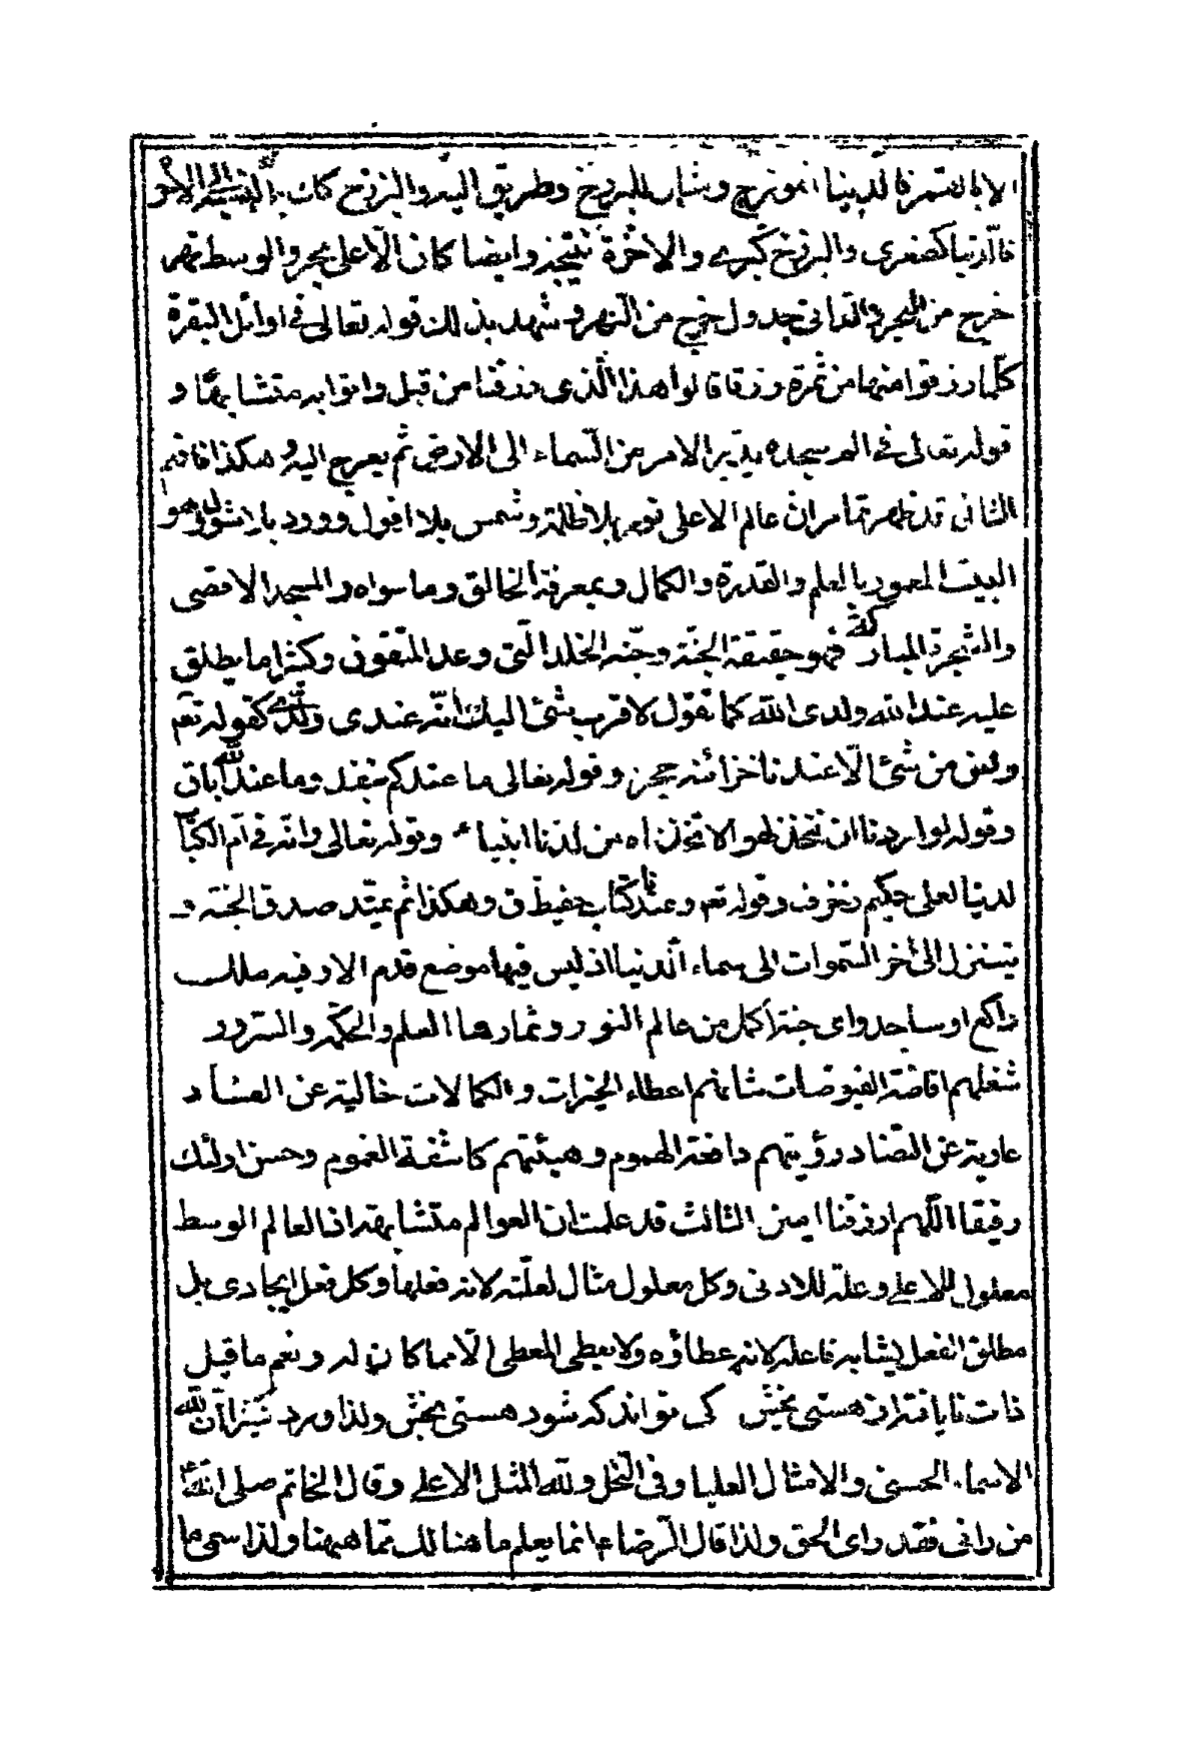 الا بالثمر فالدنيا انموذج ومثال للبرزخ وطريق اليه والبرزخ كان بالنسبة الى الاخرة
فالدنيا كصغرى والبرزخ كبرى والاخرة نتيجة وايضا كان الاعلى بحر والوسط نهر
خرج من البحر والداني جدول خرج من النهر ويشهد بذلك قوله تعالى في اوائل البقرة
كلما رزقوا منها من ثمرة رزقا قالوا هذا الذي رزقنا من قبل واتوا به متشابها و
قوله تعالى في الم سجده يدبر الامر من السماء الى الارض ثم يعرج اليه وهكذا فافهم
الثاني قد ظهر مما مر ان عالم الاعلى نور بلا ظلمة وشمس بلا افول وورد بلا شوك هو
البيت المعمور بالعلم والقدرة والكمال وبمعرفة الخالق وما سواه والمسجد الاقصى
والشجرة المباركة فهو حقيقة الجنة وجنة الخلد التي وعد المتقون وكثيرا ما يطلق
عليه عند الله ولدى الله كما تقول لاقرب شئ اليك انه عندى ولدى كقوله تع
وان من شئ الا عندنا خزائنه حجر وقوله تعالى ما عندكم ينفد وما عند الله باق
وقوله لو اردنا ان نتخذ لهوا لاتخذناه من لدنا انبياء وقوله تعالى وانه في ام الكتاب
لدينا لعلي حكيم زخرف وقوله تع وعندنا كتاب حفيظ ق وهكذا ثم يمتد صدق الجنة و
يتنزل الى اخر السموات الى سماء الدنيا اذ ليس فيها موضع قدم الا وفيه ملك
راكع او ساجد واى جنة اكمل من عالم النور وثمارها العلم والحكمة والسرور
شغلهم افاضة الفيوضات شانهم اعطاء الخيرات والكمالات خالية عن الفساد
عارية عن التضاد رؤيتهم دافعة الهموم وهيئتهم كاشفة الغموم وحسن اولئك
رفيقا اللهم ارزقنا امين الثالث قد علمت ان العوالم متشابهة اذ العالم الوسط
معلول للاعلى وعلة للادنى وكل معلول مثال لعلته لانه فعلها وكل فعل ايجادى بل
مطلق الفعل يشابه فاعله لانه عطاؤه ولا يعطى المعطى الا مما كان له ونعم ما قيل
ذات نايافته از هستى بخش كى تواند كه شود هستى بخش ولذا ورد كثيرا ان لله
الاسماء الحسنى والامثال العليا وفى النحل ولله المثل الاعلى وقال الخاتم صلى الله
من رانى فقد راى الحق ولذا قال الرضا ع انما يعلم ما هنالك مما هيهنا ولذا سمى ما